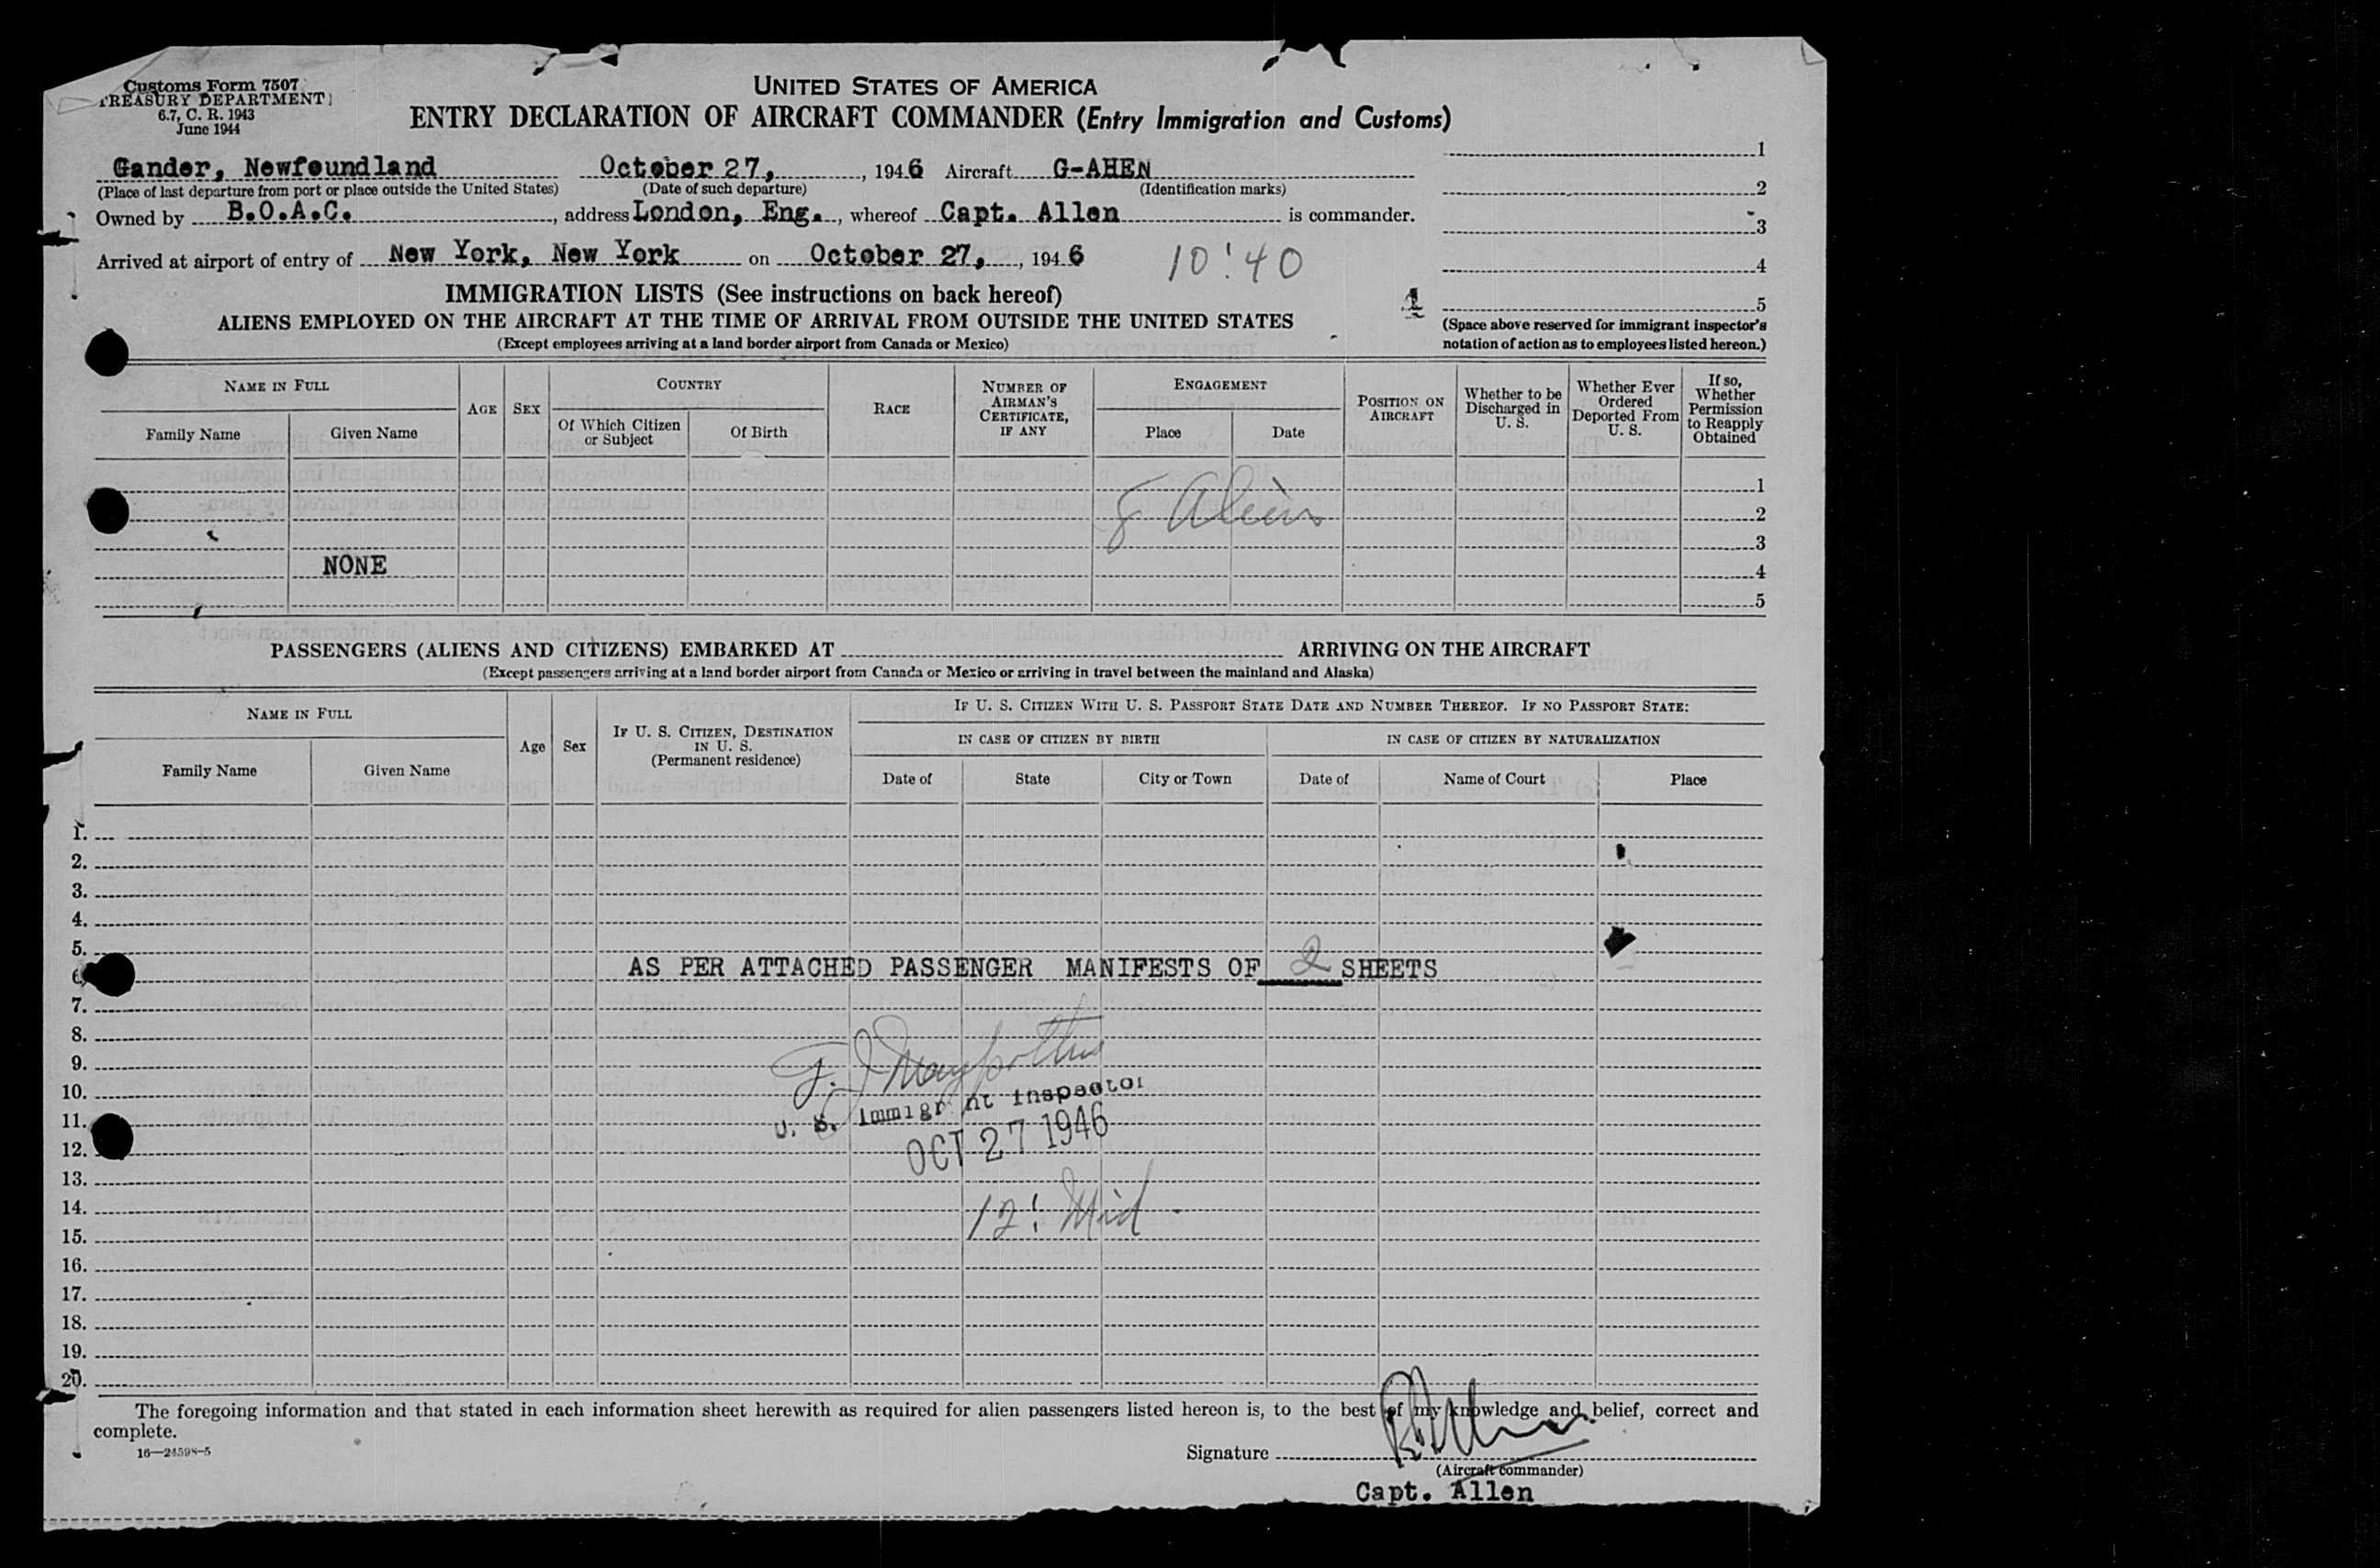 Customs Form 7507
TREASURY DEPARTMENT
6.7, C. R. 1943
June 1944
UNITED STATES OF AMERICA
ENTRY DECLARATION OF AIRCRAFT COMMANDER (Entry Immigration and Customs)
Gander, Newfoundland October 27, , 1946 Aircraft G-AHEN
(Place of last departure from port or place outside the United States) (Date of such departure) (Identification marks)
Owned by B.O.A.C. , address London, Eng. , whereof Capt. Allen is commander.
Arrived at airport of entry of New York, New York on October 27, , 1946 10:40
1
2
3
4
5
(Space above reserved for immigrant inspector's
notation of action as to employees listed hereon.)
IMMIGRATION LISTS (See instructions on back hereof)
1
ALIENS EMPLOYED ON THE AIRCRAFT AT THE TIME OF ARRIVAL FROM OUTSIDE THE UNITED STATES
(Except employees arriving at a land border airport from Canada or Mexico)
NAME IN FULL
Family Name
Given Name
AGE
SEX
COUNTRY
Of Which Citizen
or Subject
Of Birth
RACE
NUMBER OF
AIRMAN'S
CERTIFICATE,
IF ANY
ENGAGEMENT
Place
Date
POSITION ON
AIRCRAFT
Whether to be
Discharged in
U. S.
Whether Ever
Ordered
Deported From
U. S.
If so,
Whether
Permission
to Reapply
Obtained
1
8 Aliens 2
3
NONE 4
5
PASSENGERS (ALIENS AND CITIZENS) EMBARKED AT ARRIVING ON THE AIRCRAFT
(Except passengers arriving at a land border airport from Canada or Mexico or arriving in travel between the mainland and Alaska)
NAME IN FULL
Family Name
Given Name
Age
Sex
IF U. S. CITIZEN, DESTINATION
IN U. S.
(Permanent residence)
IF U. S. CITIZEN WITH U. S. PASSPORT STATE DATE AND NUMBER THEREOF. IF NO PASSPORT STATE:
IN CASE OF CITIZEN BY BIRTH
Date of
State
City or Town
IN CASE OF CITIZEN BY NATURALIZATION
Date of
Name of Court
Place
1.
2.
3.
4.
5.
6. AS PER ATTACHED PASSENGER MANIFESTS OF 2 SHEETS
7.
8.
9.
10.
U. S. Immigrant Inspector
11.
OCT 27 1946
12.
13.
14.
12: Mid.
15.
16.
17.
18.
19.
20.
The foregoing information and that stated in each information sheet herewith as required for alien passengers listed hereon is, to the best of my knowledge and belief, correct and
complete.
16—24598-5
Signature
(Aircraft commander)
Capt. Allen